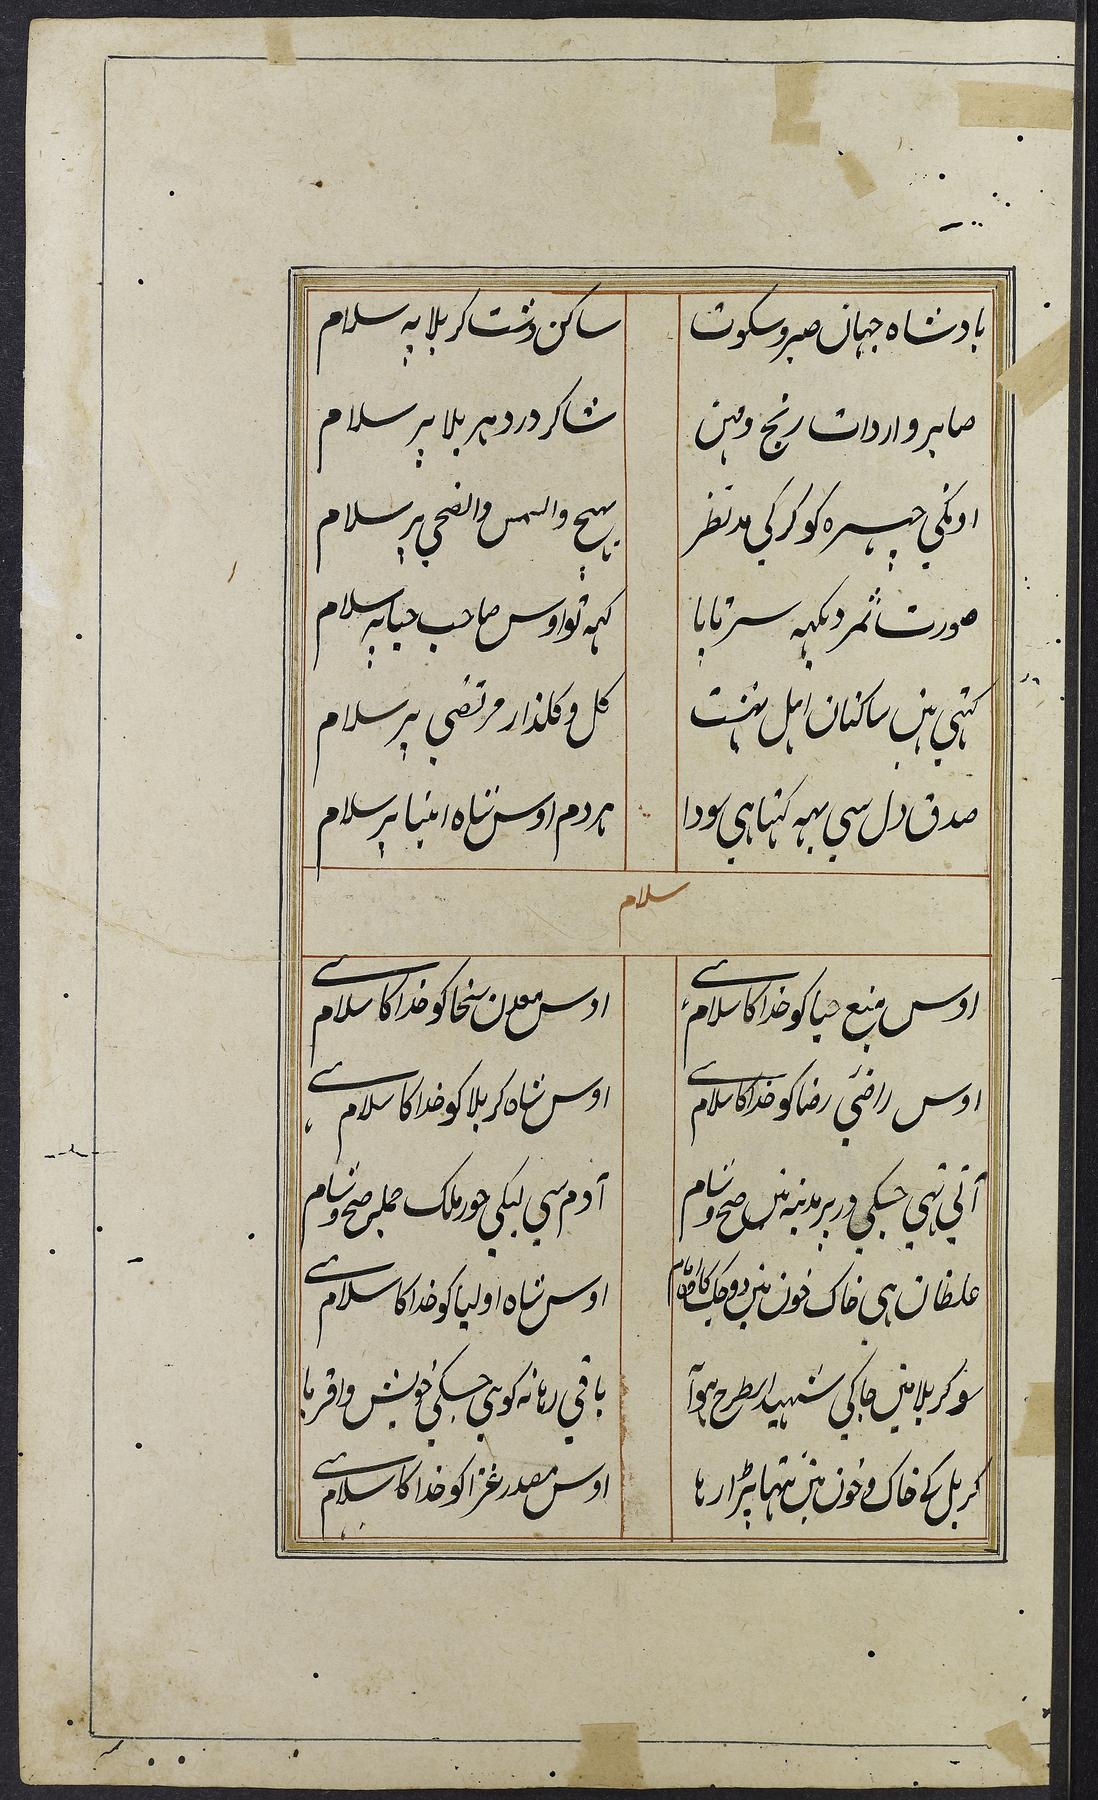 بادشاه جهان صبر و سکوت ساکن دشت کربلا پہ سلام
صابر واردات رنج و محن شاکر درد ہر بلا پر سلام
اونکی چہرہ کو کر کی مدنظر بہیج والشمس والضحی پر سلام
صورت دیکہہ سر تا پا کہہ تو اوس صاحب حیا پہ سلام
کہتی ہین ساکنان اہل بہشت کل و کلذار مرتضی پر سلام
صدق دل سی یہہ کہتا ہی سودا ہر دم اوس شاہ انبیا پر سلام
سلام
اوس منبع حیا کو خدا کا سلام ہے اوس معدن سخا کو خدا کا سلام ہے
اوس راضی رضا کو خدا کا سلام ہے اوس شاہ کربلا کو خدا کا سلام ہے
آتی تہی جسکی در پر مدینہ مین صبح و شام آدم سی لیکی حور ملک جملہ صبح و شام
غلطان ہی خاک خون مین دو جک کا امام اوس شاہ اولیا کو خدا کا سلام ہے
سو کربلا مین جا کی شہید اسطرح ہوا باقی رہا نہ کوہی جسکی خویش و اقربا
کربل کے خاک و خون مین تنہا پڑا رہا اوس مصدر عزا کو خدا کا سلام ہے